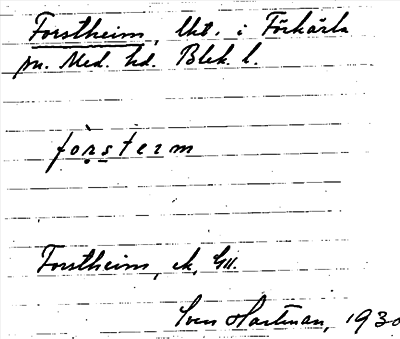 Forstheim, lht. i Förkärla
sn. Med. hd. Blek. l.
fòrsteım
Forstheim, ek. GK.
Sven Hartman, 1930